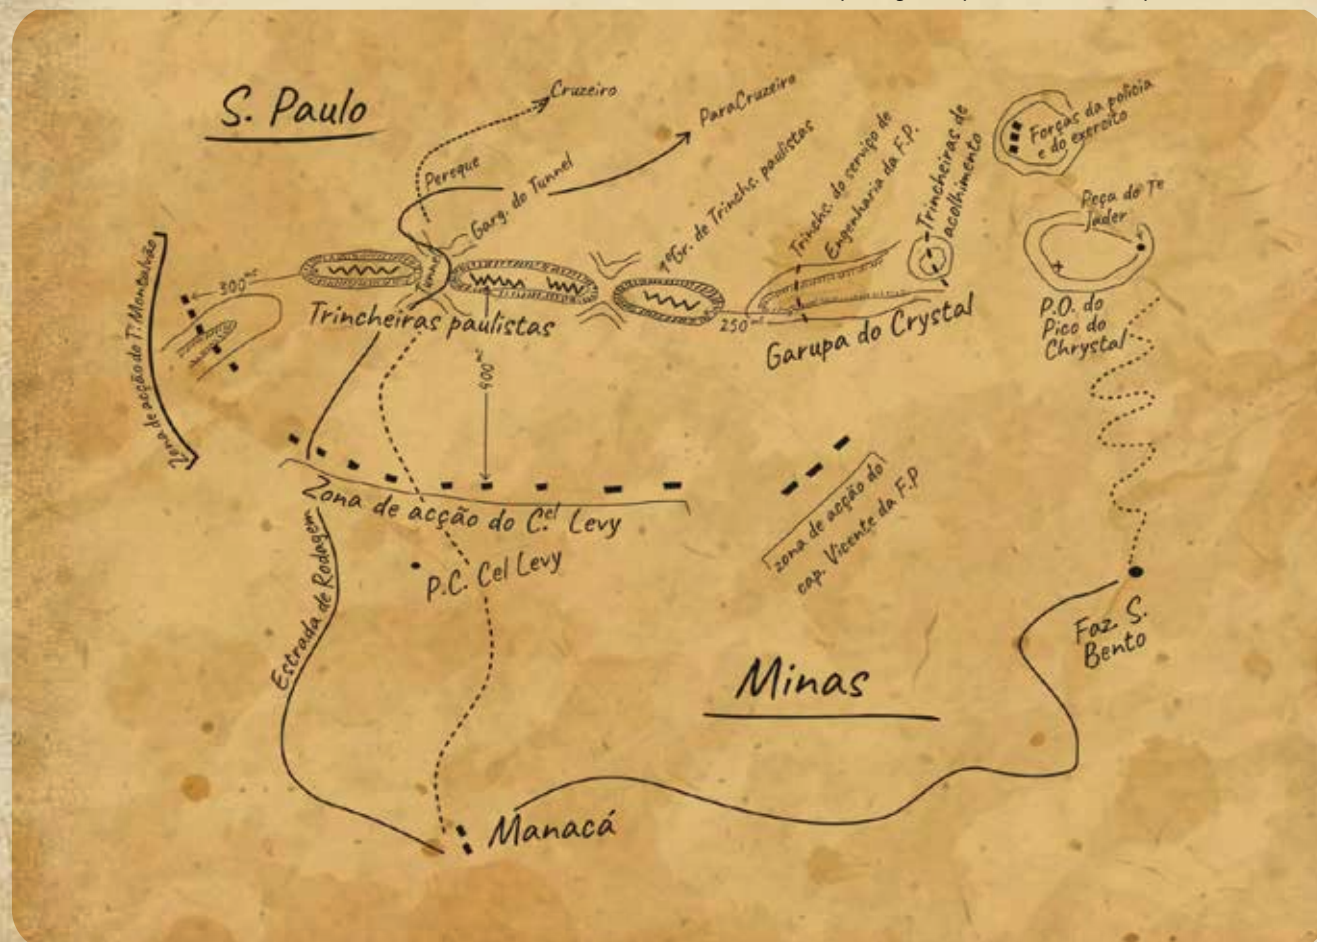 S. Paulo
Cruzeiro
ParaCruzeiro
Pereque
Garg. do Tunnel
1º Gr. de Trinchs. paulistas
Trinchs. do serviço de
Engenharia da F.P.
Trincheiras de
acolhimento
Forças da policia
e do exercito
Peça do Te
Jader
P.O. do
Pico do
Chrystal
Zona de acção do T. Montalvão
300 mc
Tunnel
Trincheiras paulistas
250 mt
Garupa do Crystal
900 mc
Zona de acção do C.el Levy
P.C. Cel Levy
zona de acção do
cap. Vicente da F.P
Estrada de Rodagem
Faz. S.
Bento
Minas
Manacá